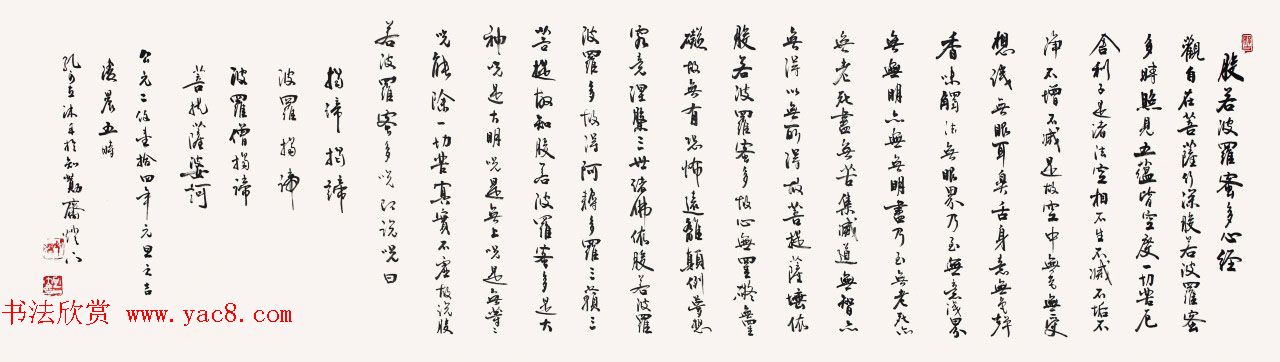 般若波羅蜜多心经
觀自在菩薩行深般若波羅蜜
多時照見五蘊皆空度一切苦厄
舍利子是诸法空相不生不滅不垢不
淨不增不减是故空中無色無受
想識無眼耳鼻舌身意無色聲
香味觸法無眼界乃至無意識界
無無明亦無無明盡乃至無老死亦
無老死盡無苦集滅道無智亦
無得以無所得故菩提薩埵依
般若波羅蜜多故心無罣礙無罣
礙故無有恐怖遠離顛倒夢想
究竟涅槃三世諸佛依般若波羅
波羅多故得阿耨多羅三藐三
菩提故知般若波羅蜜多是大
神咒是大明咒是無上咒是無等等
咒能除一切苦真實不虛故說般
若波羅蜜多咒即說咒曰
揭諦揭諦
波羅揭諦
波羅僧揭諦
菩提薩婆訶
公元二仟壹拾四年元旦之吉
清晨五時
沐手於知齋燈下
书法欣赏 www.yac8.com